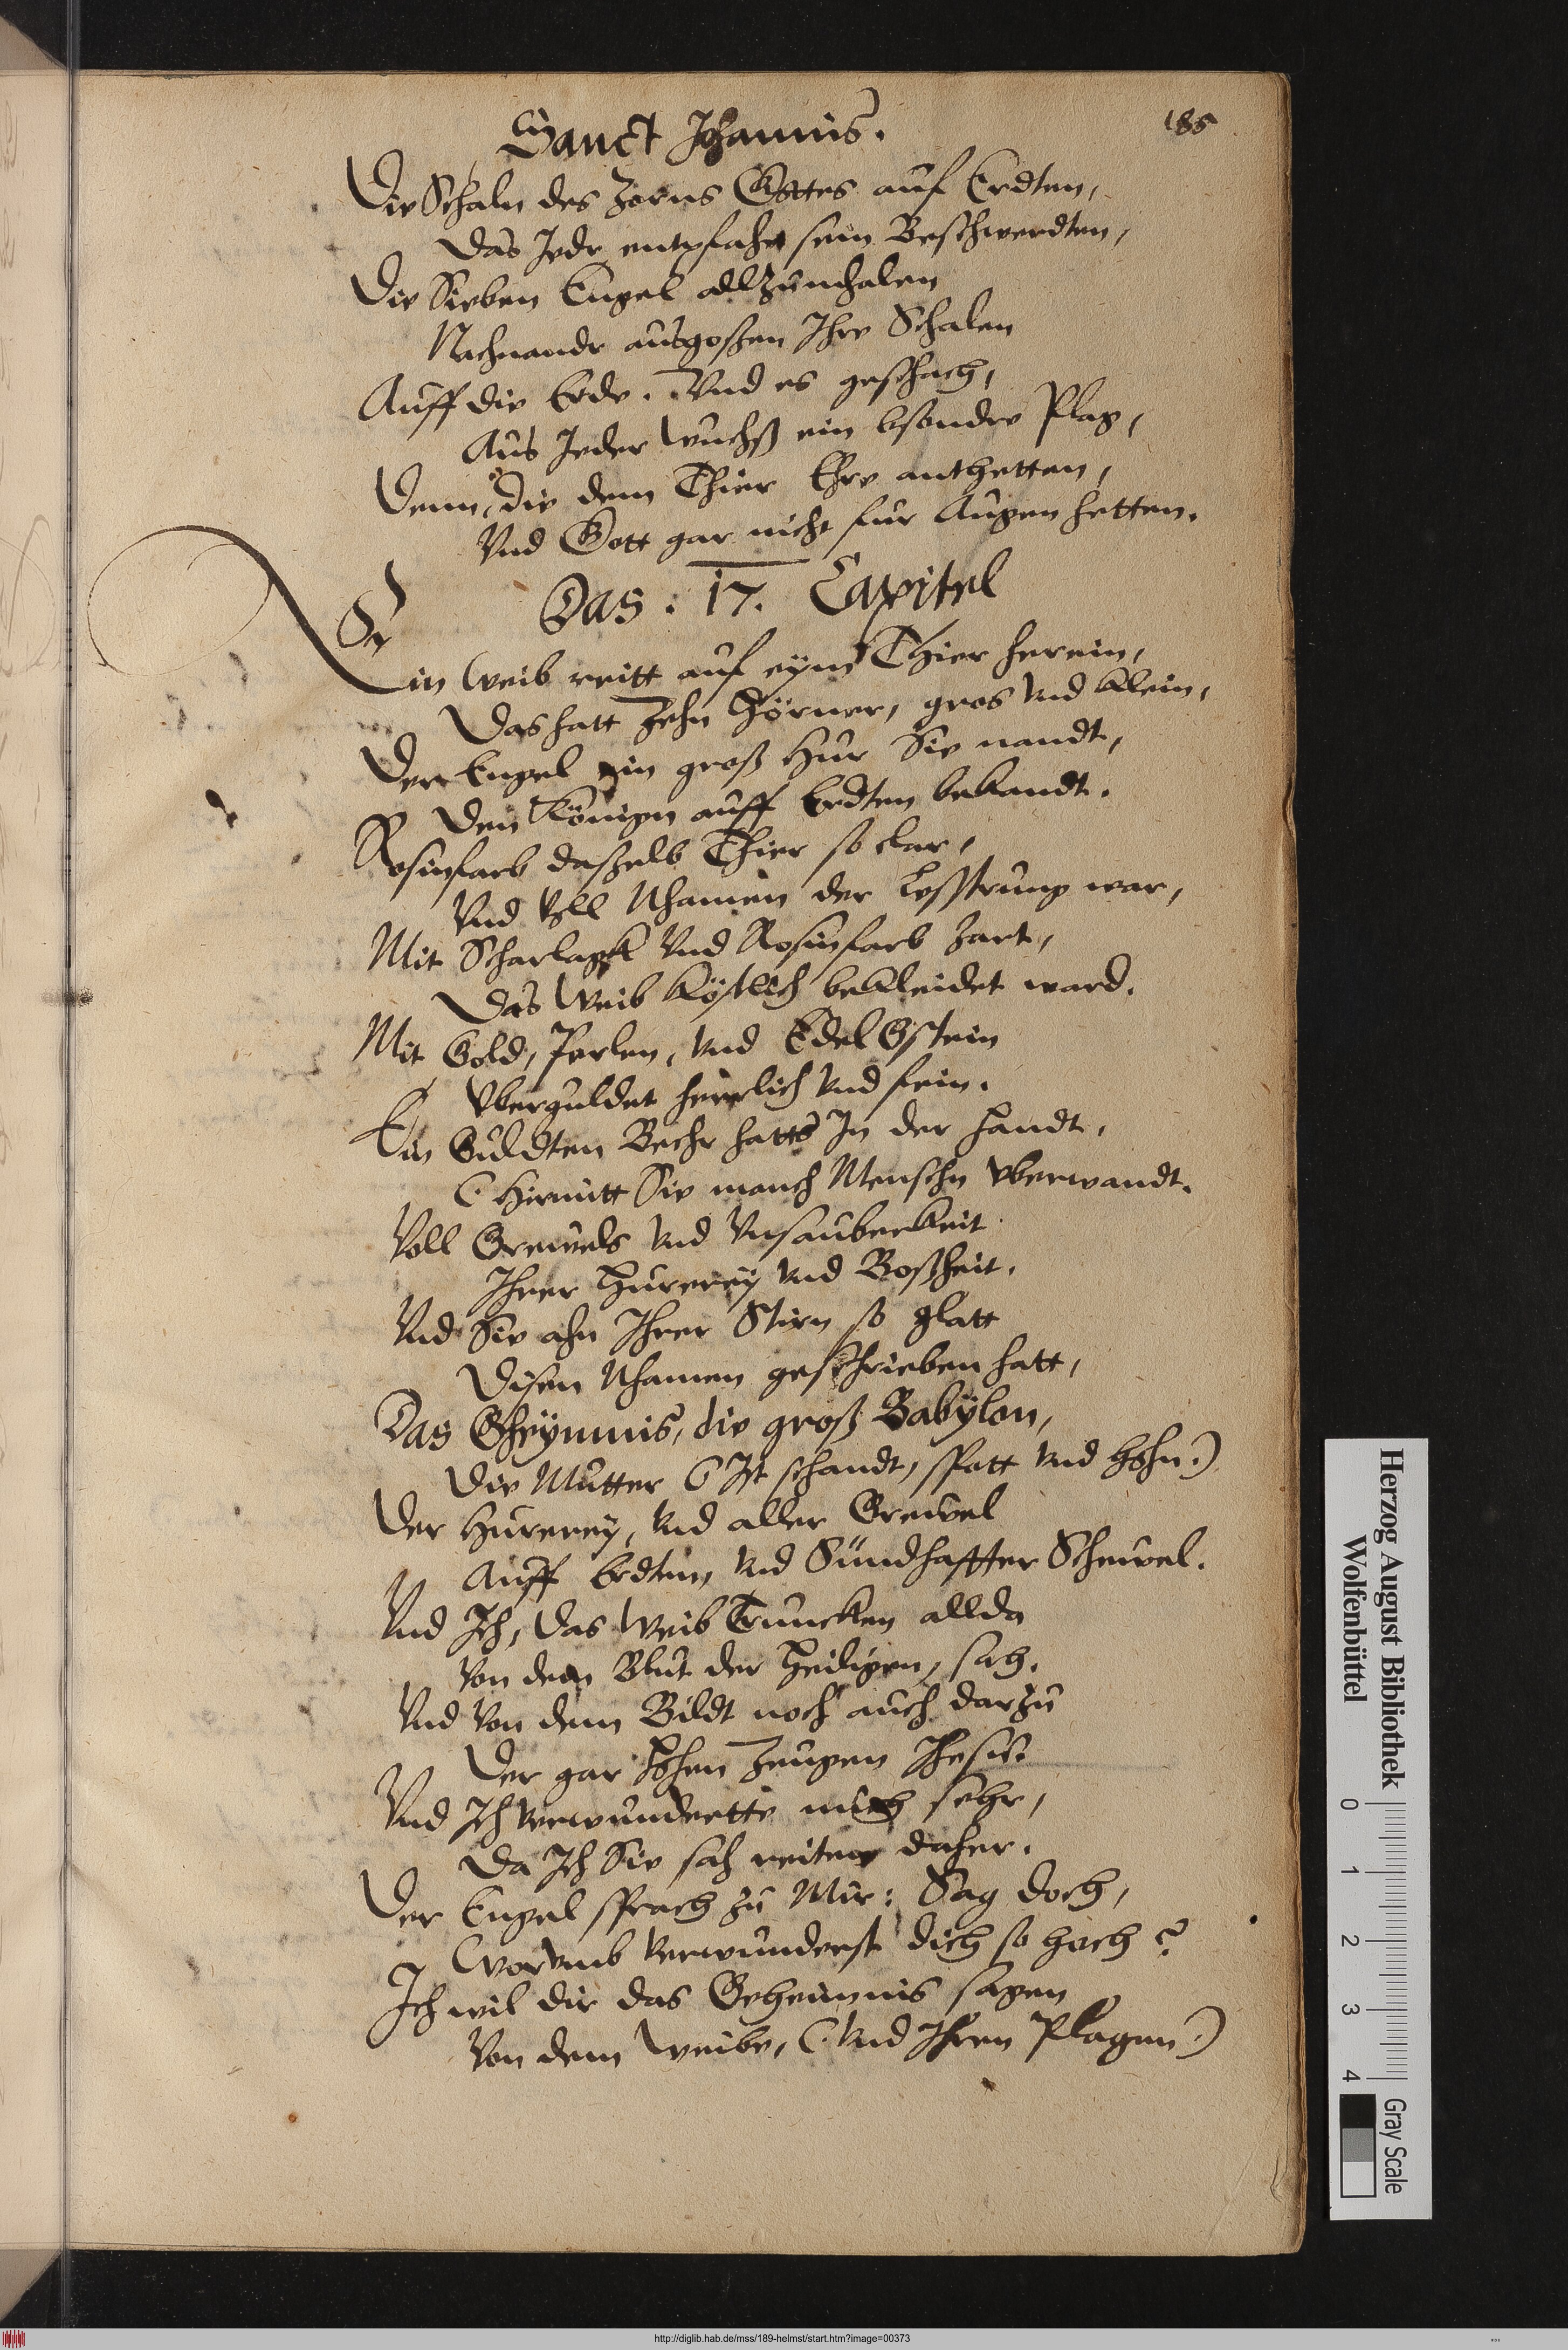 Sanct Johannis.
185
Die Schaln des Zorns Gottes auf Erdten,
Das Jedr entpfahe sein Beschwerdten,
Die Sieben Engel allzunhalen
Nachnandr ausgoßen Ihre Schalen
Auff die Erde. Vnd es geschach,
Aus Jeder wuchß ein bsondre Plag,
Denn, die dem Thier Ehre anthetten,
Vnd Gott gar nicht fur Augen hetten.
Das. 17. Capitel
Ein Weib reitt auf eynd Thier herein,
Das hatt Zehn Hörner, gros vnd klein,
Der Engel ein groß Hur Sie nandt,
Den Könign auff Erdten bekandt.
Rosinfarb daßelb Thier so clar,
Vnd Voll Nhamen der Lesstrung war,
Mit Scharlagk Vnd Rosinfarb Zart,
Das Weib köstlich bekleidet ward.
Mit Gold, Perlen, vnd Edel Gstein
Vberguldet herrlich vnd fein.
Ein Guldten Bechr hatts In der Handt,
(Hirmitt Sie manch Menschn vberwandt.
Voll Grewels vnd Vnsauberkeit
Ihrer Hurerey vnd Boßheit.
Vnd Sie ahn Ihrer Stirn so glatt
Disen Nhamen geschrieben hatt,
Das Gheymnis, die groß Babylon,
Die Mutter (Ist schandt, spott vnd Hohn.)
Der Hurerey, vnd aller Grewel
Auff Erdten vnd Sündhaffter Schewel.
Vnd Ich, das Weib Truncken allda
Von dem Blut der Heiligen, sah.
Vnd Von dem Bildt noch auch darzu
Der gar Hohen Zeugen Jhesu.
Vnd Ich verwundertte mich sehr,
Da Ich Sie sah reiten daher.
Der Engel sprach zu Mir: Sag doch,
Worvmb verwunderst dich so hoch?
Ich wil dir das Geheimnis sagen
Von dem Weibe, (Vnd Ihren Plagen)
Herzog August Bibliothek
Wolfenbüttel
0 1 2 3 4
Gray Scale
http://diglib.hab.de/mss/189-helmst/start.htm?image=00373